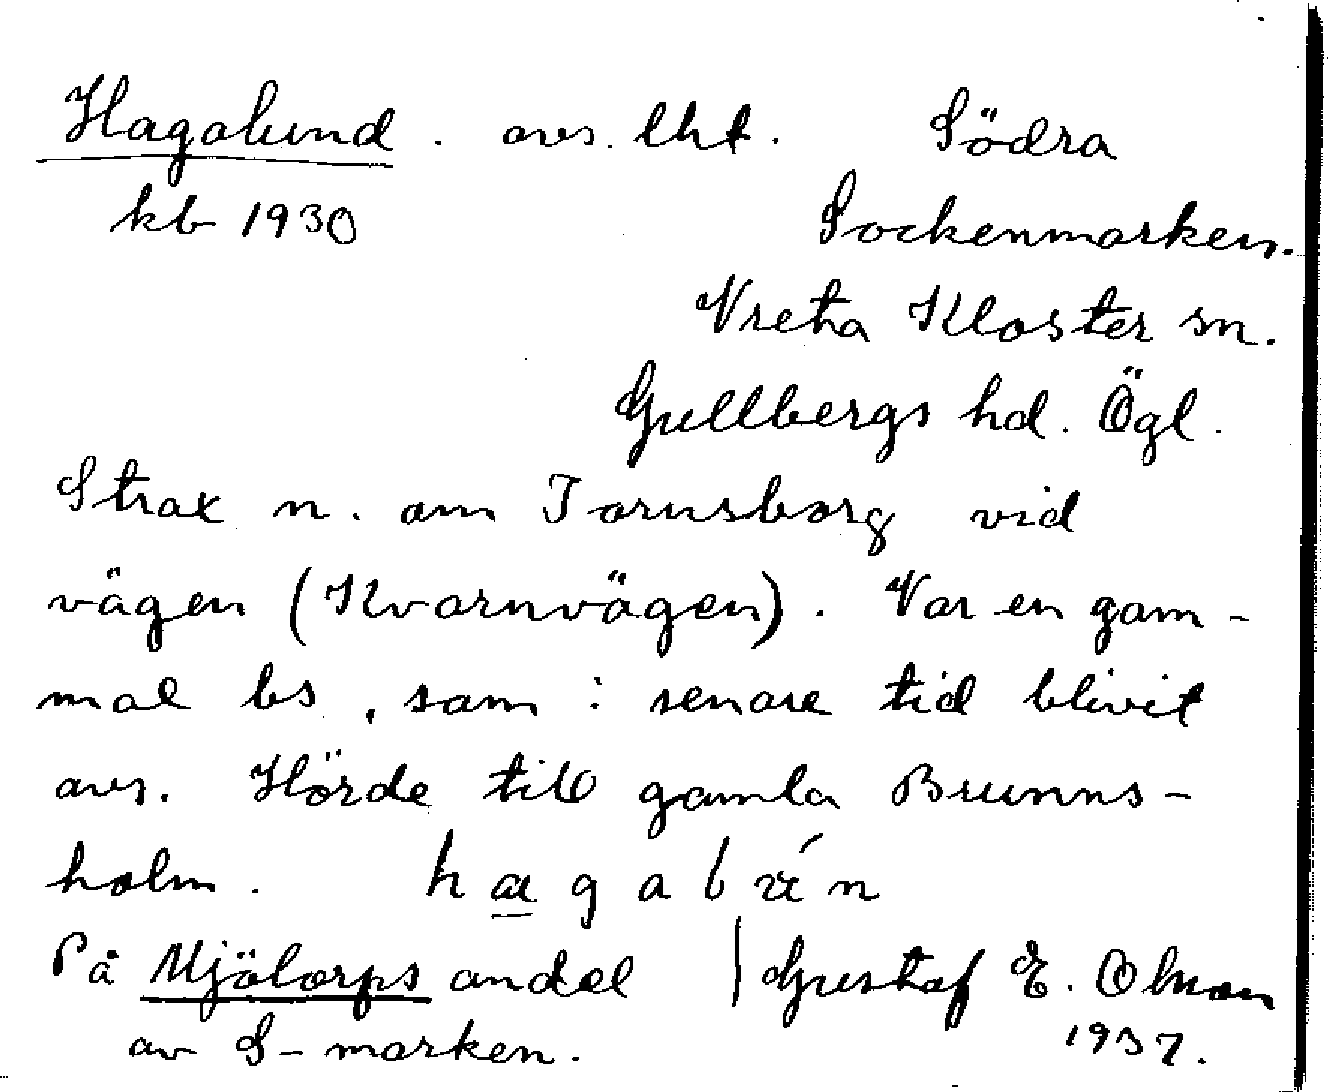 Hagalund. avs. lht. Södra
kb 1930 Sockenmarken.
Vreta Kloster sn.
Gullbergs hd. Ögl.
Strax n. om Tornsborg vid
vägen (Kvarnvägen). Var en gam-
mal bs, som i senare tid blivit
avs. Hörde till gamla Brunns-
holm.
På Mjölorps andel | Gustaf E. Olsson
av S-marken. 1937.